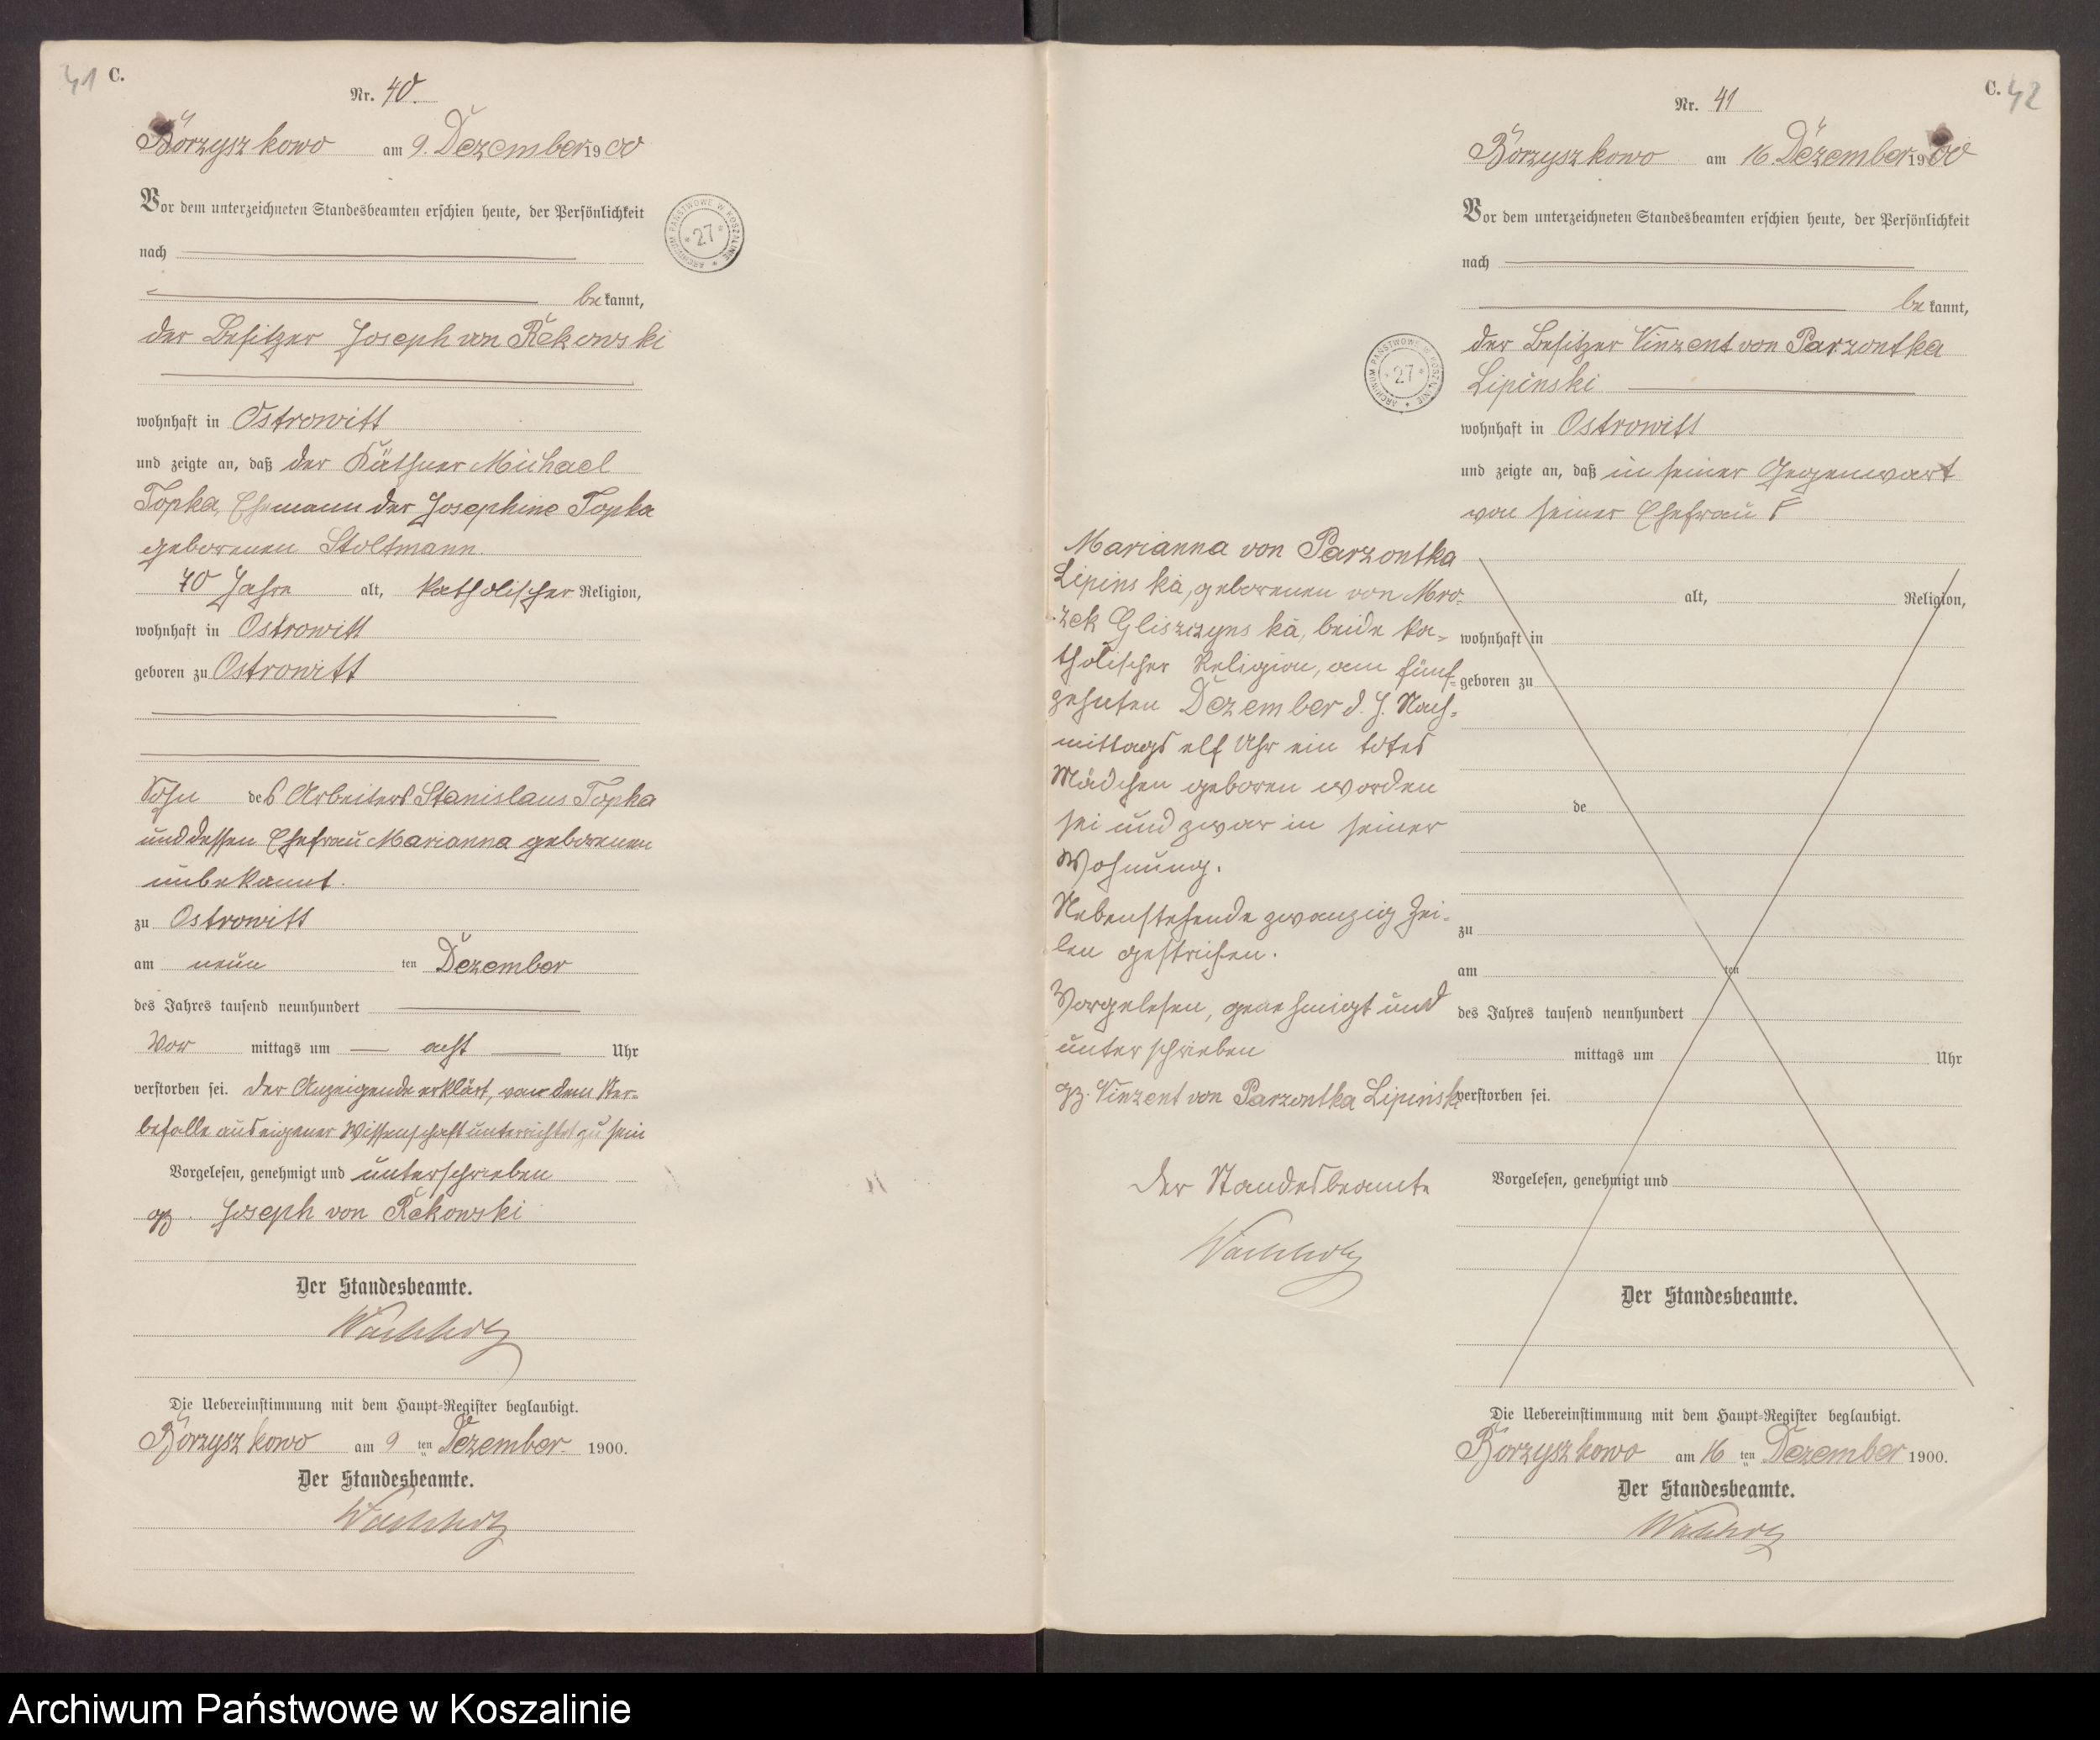 41 C.
Nr. 40.
Borzyszkowo am 9. Dezember 1900
Vor dem unterzeichneten Standesbeamten erschien heute, der Persönlichkeit
nach
bekannt,
der Besitzer Joseph von Rekowski
wohnhaft in Ostrowitt
und zeigte an, daß der Käthner Michael
Topka, Ehemann der Josephine Topka
geborenen Stoltmann.
70 Jahre alt, katholischer Religion,
wohnhaft in Ostrowitt
geboren zu Ostrowitt
Sohn des Arbeiters Stanislaus Topka
und dessen Ehefrau Marianna geborenen
unbekannt.
zu Ostrowitt
am neun ten Dezember
des Jahres tausend neunhundert
Vor mittags um acht Uhr
verstorben sei. Der Anzeigende erklärt, von dem Ster-
befalle aus eigener Wissenschaft unterrichtet zu sein
Vorgelesen, genehmigt und unterschrieben
gz. Joseph von Rekowski
Der Standesbeamte.
Wachholz
Die Uebereinstimmung mit dem Haupt-Register beglaubigt.
Borzyszkowo am 9 ten Dezember 1900.
Der Standesbeamte.
Wachholz
ARCHIWUM PAŃSTWOWE W KOSZALINIE * 27 *
C. 42
Nr. 41
Borzyszkowo am 16 Dezember 1900
Vor dem unterzeichneten Standesbeamten erschien heute, der Persönlichkeit
nach
bekannt,
der Besitzer Vinzent von Parzontka
Lipinski
wohnhaft in Ostrowitt
und zeigte an, daß in seiner Gegenwart
von seiner Ehefrau
ARCHIWUM PAŃSTWOWE W KOSZALINIE * 27 *
Marianna von Parzontka
Lipinska, geborenen von Mro-
zek Gliszczynska, beide ka-
tholischer Religion, am fünf-
zehnten Dezember d. J. Nach-
mittags elf Uhr ein totes
Mädchen geboren worden
sei und zwar in seiner
Wohnung.
Nebenstehende zwanzig Zei-
len gestrichen.
Vorgelesen, genehmigt und
unterschrieben
gz. Vinzent von Parzontka Lipinski
Der Standesbeamte
Wachholz
alt, Religion,
wohnhaft in
geboren zu
de
zu
am ten
des Jahres tausend neunhundert
mittags um Uhr
verstorben sei.
Vorgelesen, genehmigt und
Der Standesbeamte.
Die Uebereinstimmung mit dem Haupt-Register beglaubigt.
Borzyszkowo am 16 ten Dezember 1900.
Der Standesbeamte.
Wachholz
Archiwum Państwowe w Koszalinie